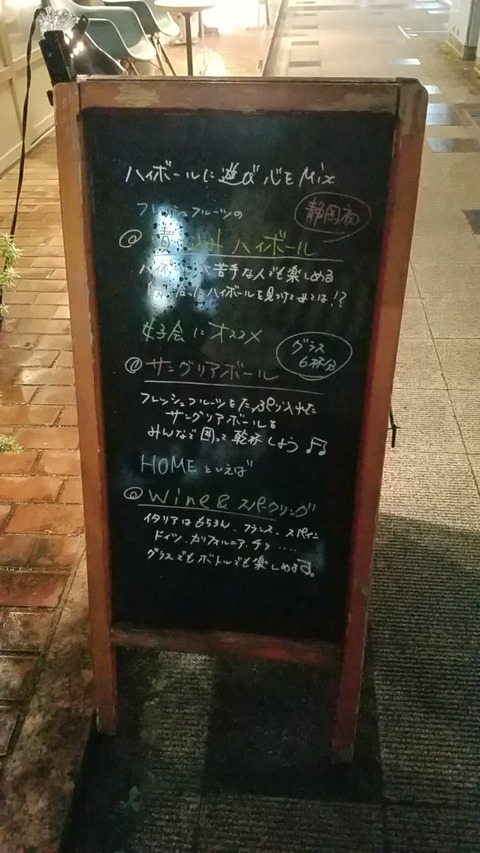 ハイボールに遊び心をMix
静岡初
フレッシュフルーツの
ハイボール
ハイボールが苦手な人でも楽しめる
ハイボールを見つけてみては!?
女子会にオススメ
グラス
6杯分
@ サングリアボール
フレッシュフルーツをたっぷり入れた
サングリアボールを
みんなで囲って乾杯しよう♫
HOMEといえば
@ Wine & スパークリング
イタリアはもちろん、フランス、スペイン
ドイツ、カリフォルニア、チリ.....
グラスでもボトルでも楽しめます。